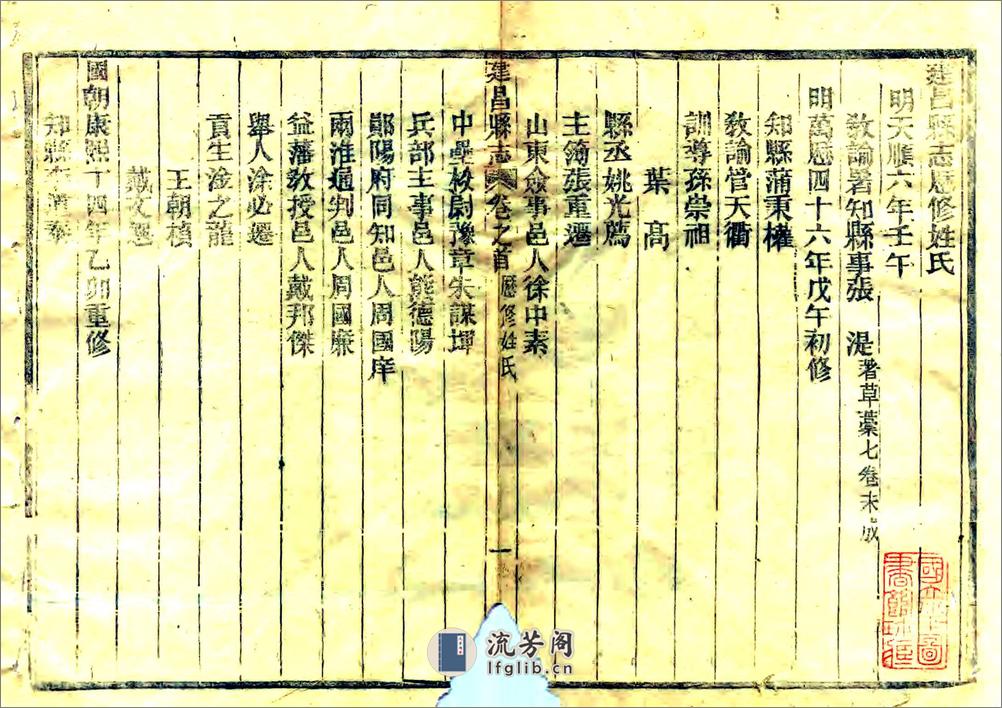 建昌縣志歷修姓氏
明天順六年壬午
教諭署知縣事張 湜著草藁七卷未成
明萬曆四十六年戊午初修
知縣蒲秉權
教諭管天衢
訓導孫崇祖
葉 高
縣丞姚光薦
主簿張重遷
山東僉事邑人徐中素
建昌縣志 卷之首 歷修姓氏 一
中壘校尉豫章朱謀㙔
兵部主事邑人熊德陽
鄖陽府同知邑人周國庠
兩淮通判邑人周國廉
益藩教授邑人戴邦傑
舉人涂必遷
貢生淦之龍
王朝楨
戴文
國朝康熙十四年乙卯重修
知縣李
流芳阁
lfglib.cn